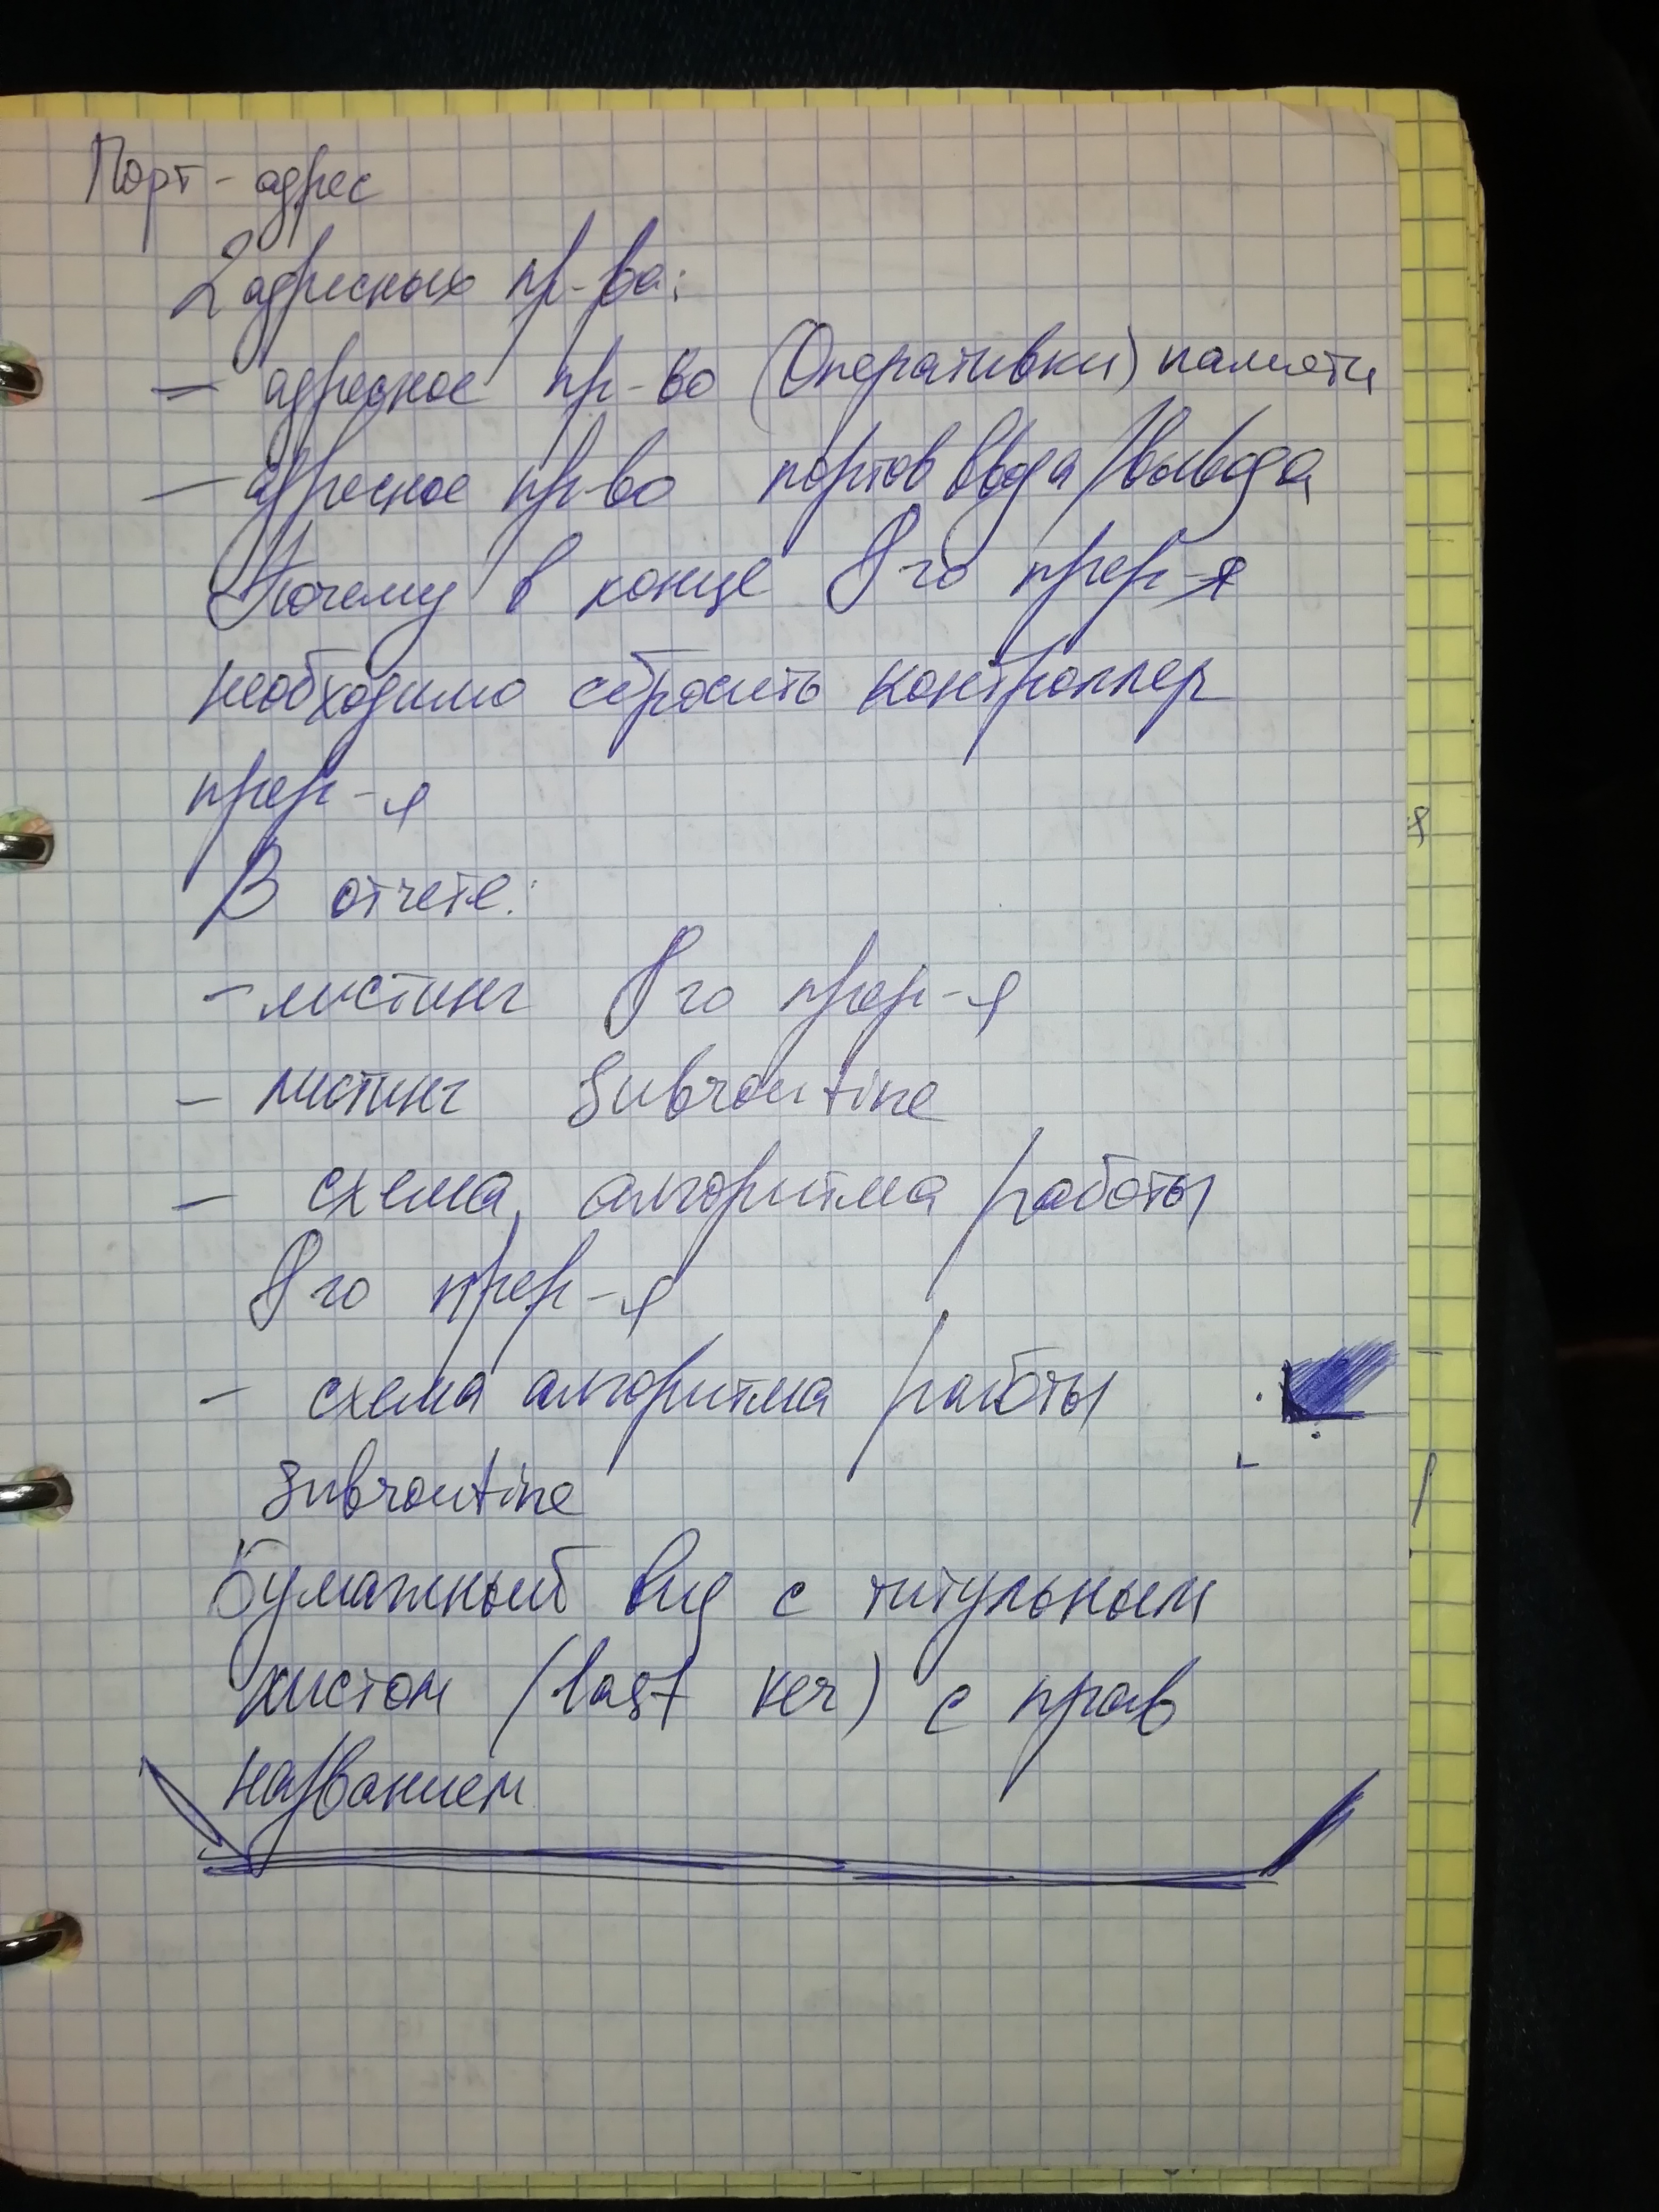 Порт - адрес
2 адресных пр-ва:
- адресное пр-во (Оперативки) памяти
- адресное пр-во портов ввода/вывода
Почему в конце 8го прер-я
необходимо сбросить контроллер
прер-я
В отчете:
- листинг 8го прер-я
- листинг Subroutine
- схема алгоритма работы
8го прер-я
- схема алгоритма работы
Subroutine
Бумажный вид с титульным
листом (last чел) с прав
названием